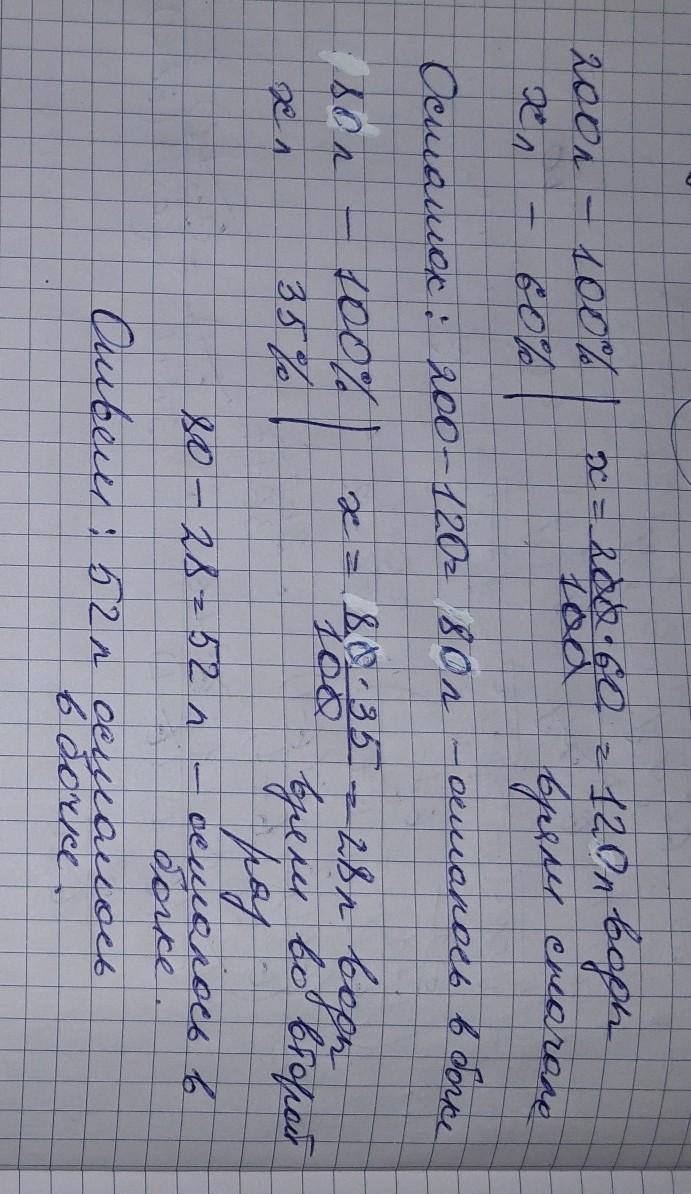 200л - 100% | x = 200·60/100 = 120л воды
xл - 60% | взяли сначала
Остаток: 200-120= 80л - осталось в бочке
80л - 100% | x = 80·35/100 = 28л воды
xл 35% | взяли во второй
раз
80-28=52л - осталось в
бочке.
Ответ: 52л осталось
в бочке.